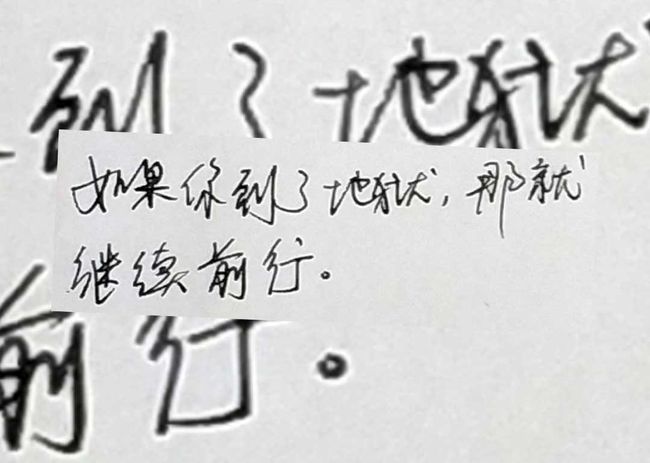 到了地狱
如果你到了地狱,那就
继续前行。
前行。